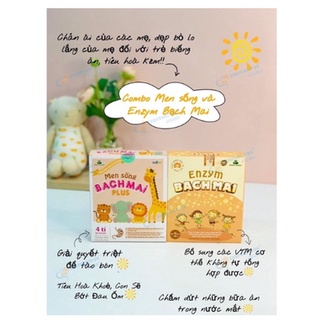 Chân ái của các mẹ, dẹp bỏ lo
lắng của mẹ đối với trẻ biếng
ăn, tiêu hoá kém!!
Combo Men sống và
Enzym Bạch Mai
Men sống
BẠCH MAI
PLUS
4 tỉ
Enzym
BẠCH MAI
Giải quyết triệt
để táo bón
Tiêu Hoá Khoẻ, Con Sẽ
Bớt Đau Ốm
Bổ sung các VTM cơ
thể không tự tổng
hợp được
Chấm dứt những bữa ăn
trong nước mắt